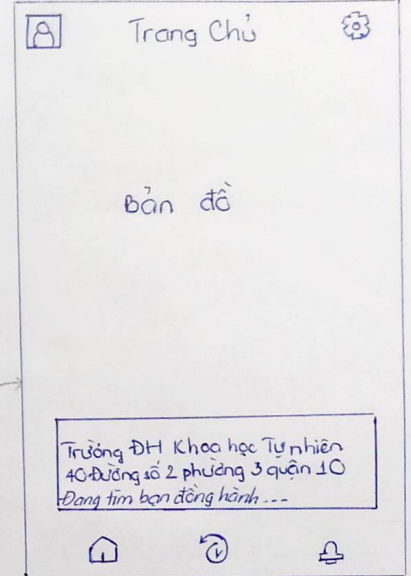 Trang Chủ
Bản đồ
Trường ĐH Khoa học Tự nhiên
40 Đường số 2 phường 3 quận 10
Đang tìm bạn đồng hành ...